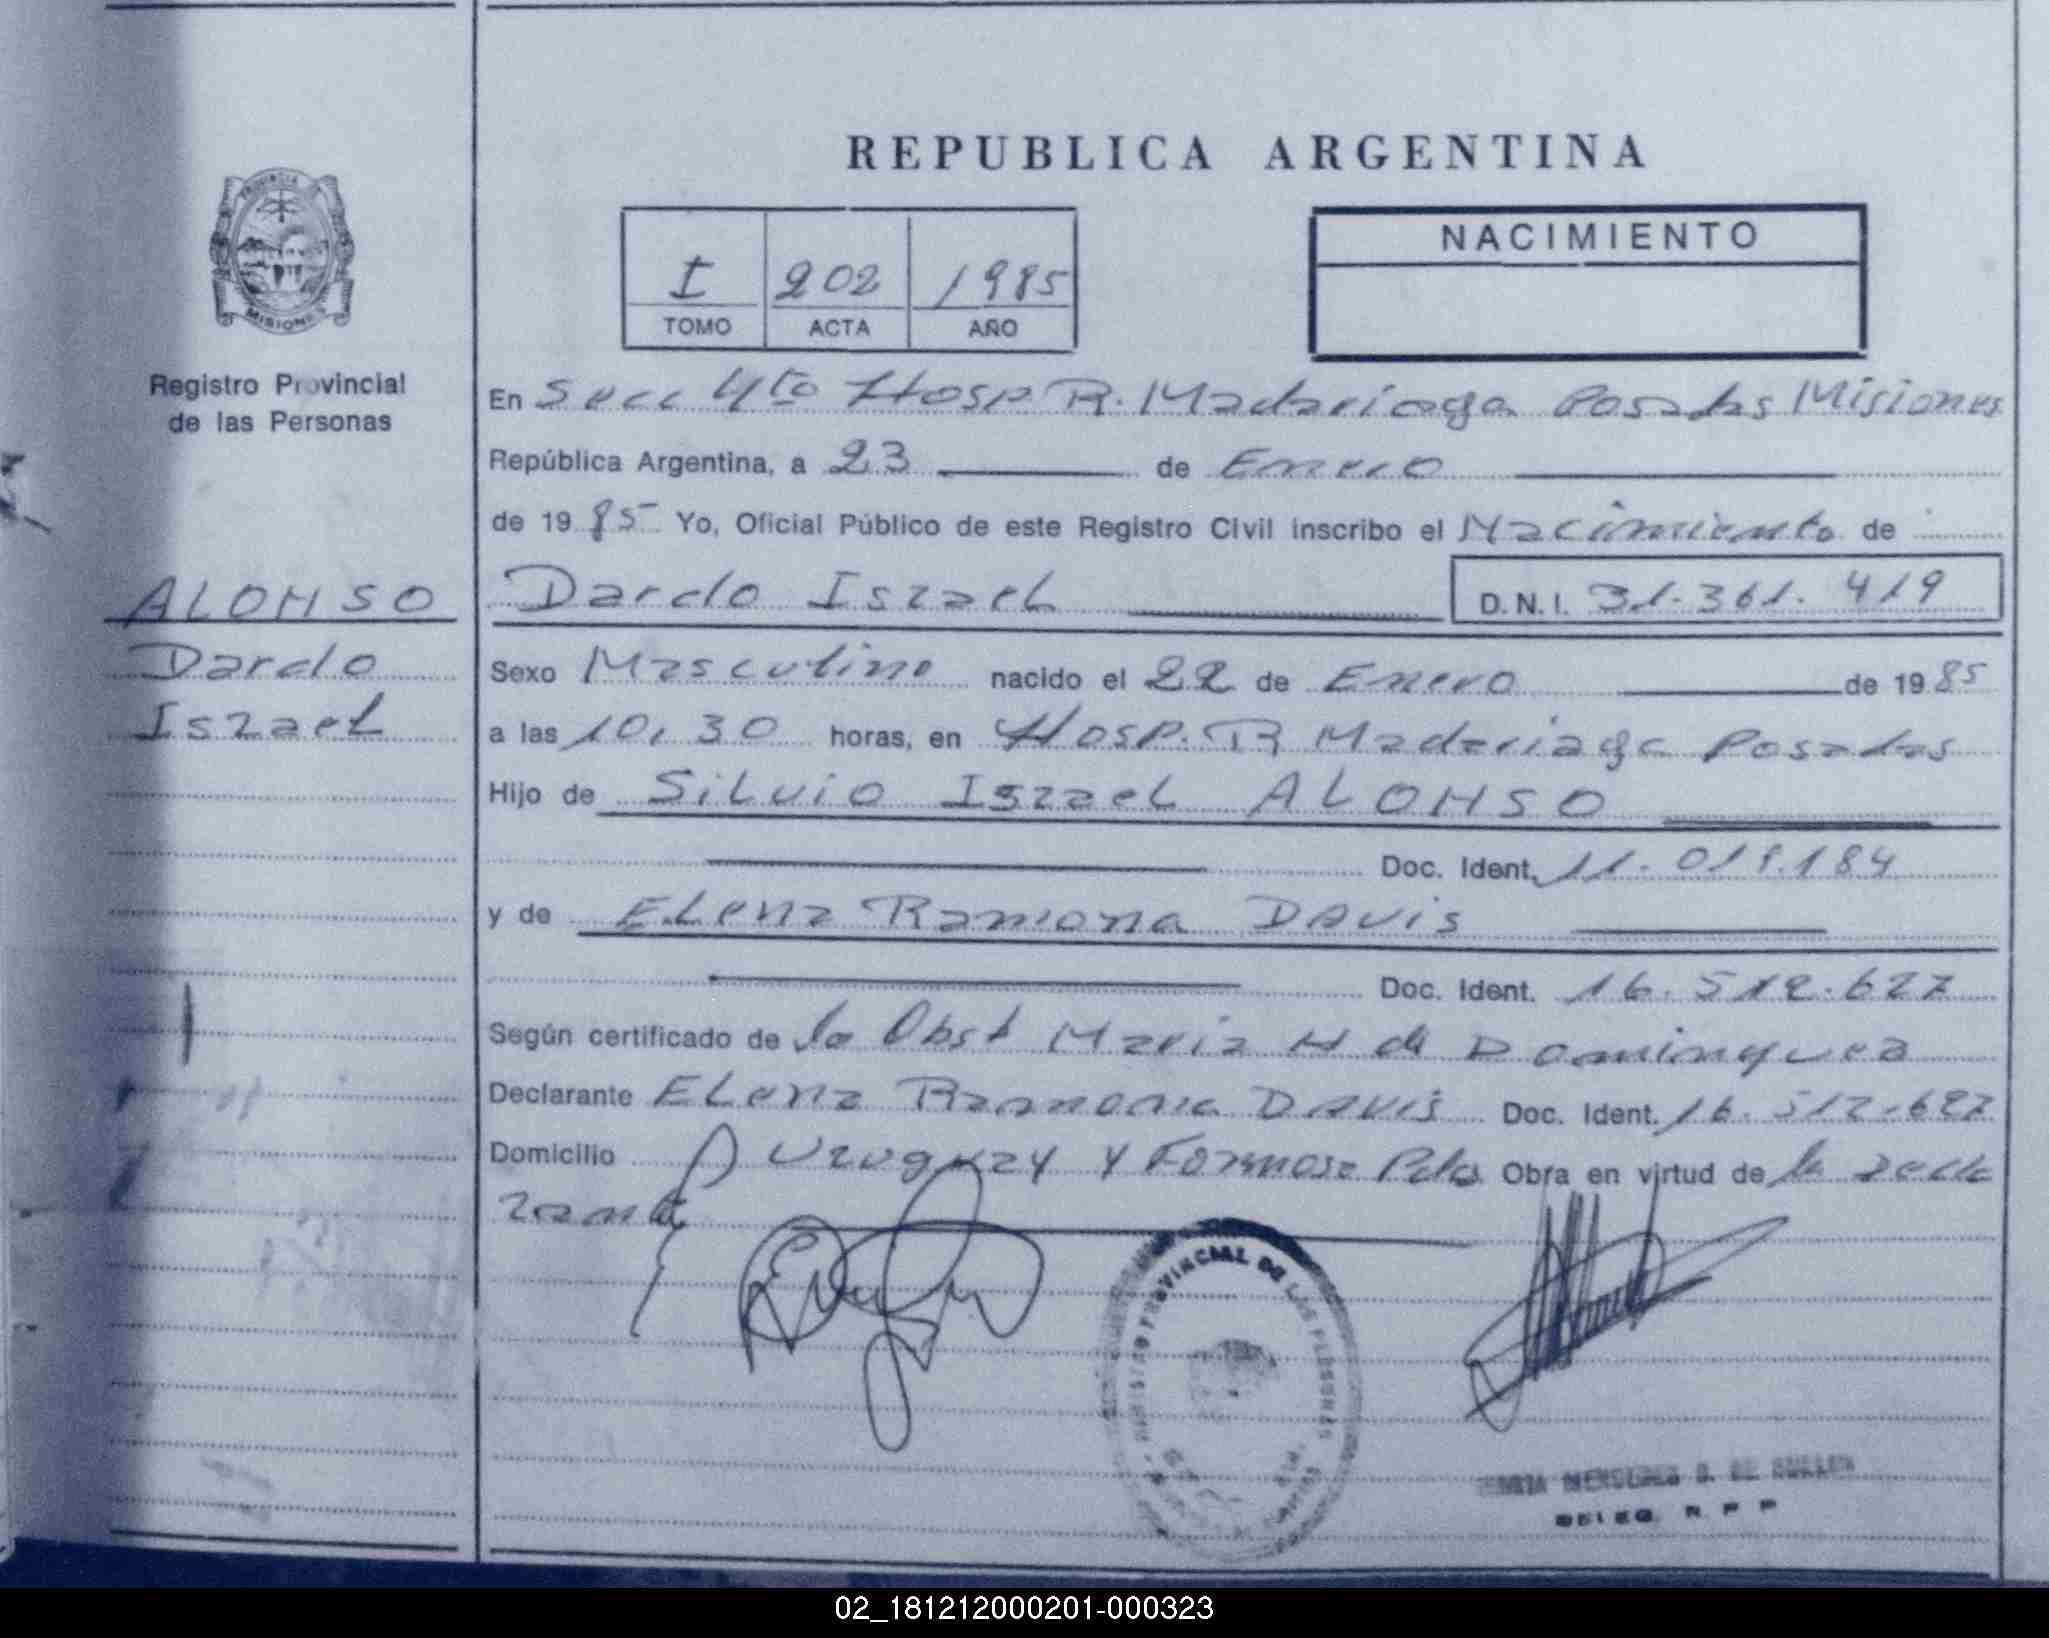 REPUBLICA ARGENTINA
PROVINCIA
MISIONES
Registro Provincial
de las Personas
I 202 1985
TOMO ACTA AÑO
NACIMIENTO
En Secc 4to Hosp R. Madariaga Posadas Misiones
República Argentina, a 23 de Enero
de 1985 Yo, Oficial Público de este Registro Civil inscribo el Nacimiento de
ALONSO
Dardo
Iszael
Dardo Iszael D.N.I. 31.361.419
Sexo Masculino nacido el 22 de Enero de 1985
a las 10,30 horas, en Hosp. R Madariaga Posadas
Hijo de Silvio Iszael ALONSO
Doc. Ident. 11.019.184
y de Elena Ramona Davis
Doc. Ident. 16.512.627
Según certificado de la Obst Maria H de Dominguez
Declarante Elena Ramona Davis Doc. Ident. 16.512.627
Domicilio Uruguay y Formosa Pdas Obra en virtud de la
PROVINCIAL DE LAS PERSONAS
DELEG. R P P
02_181212000201-000323